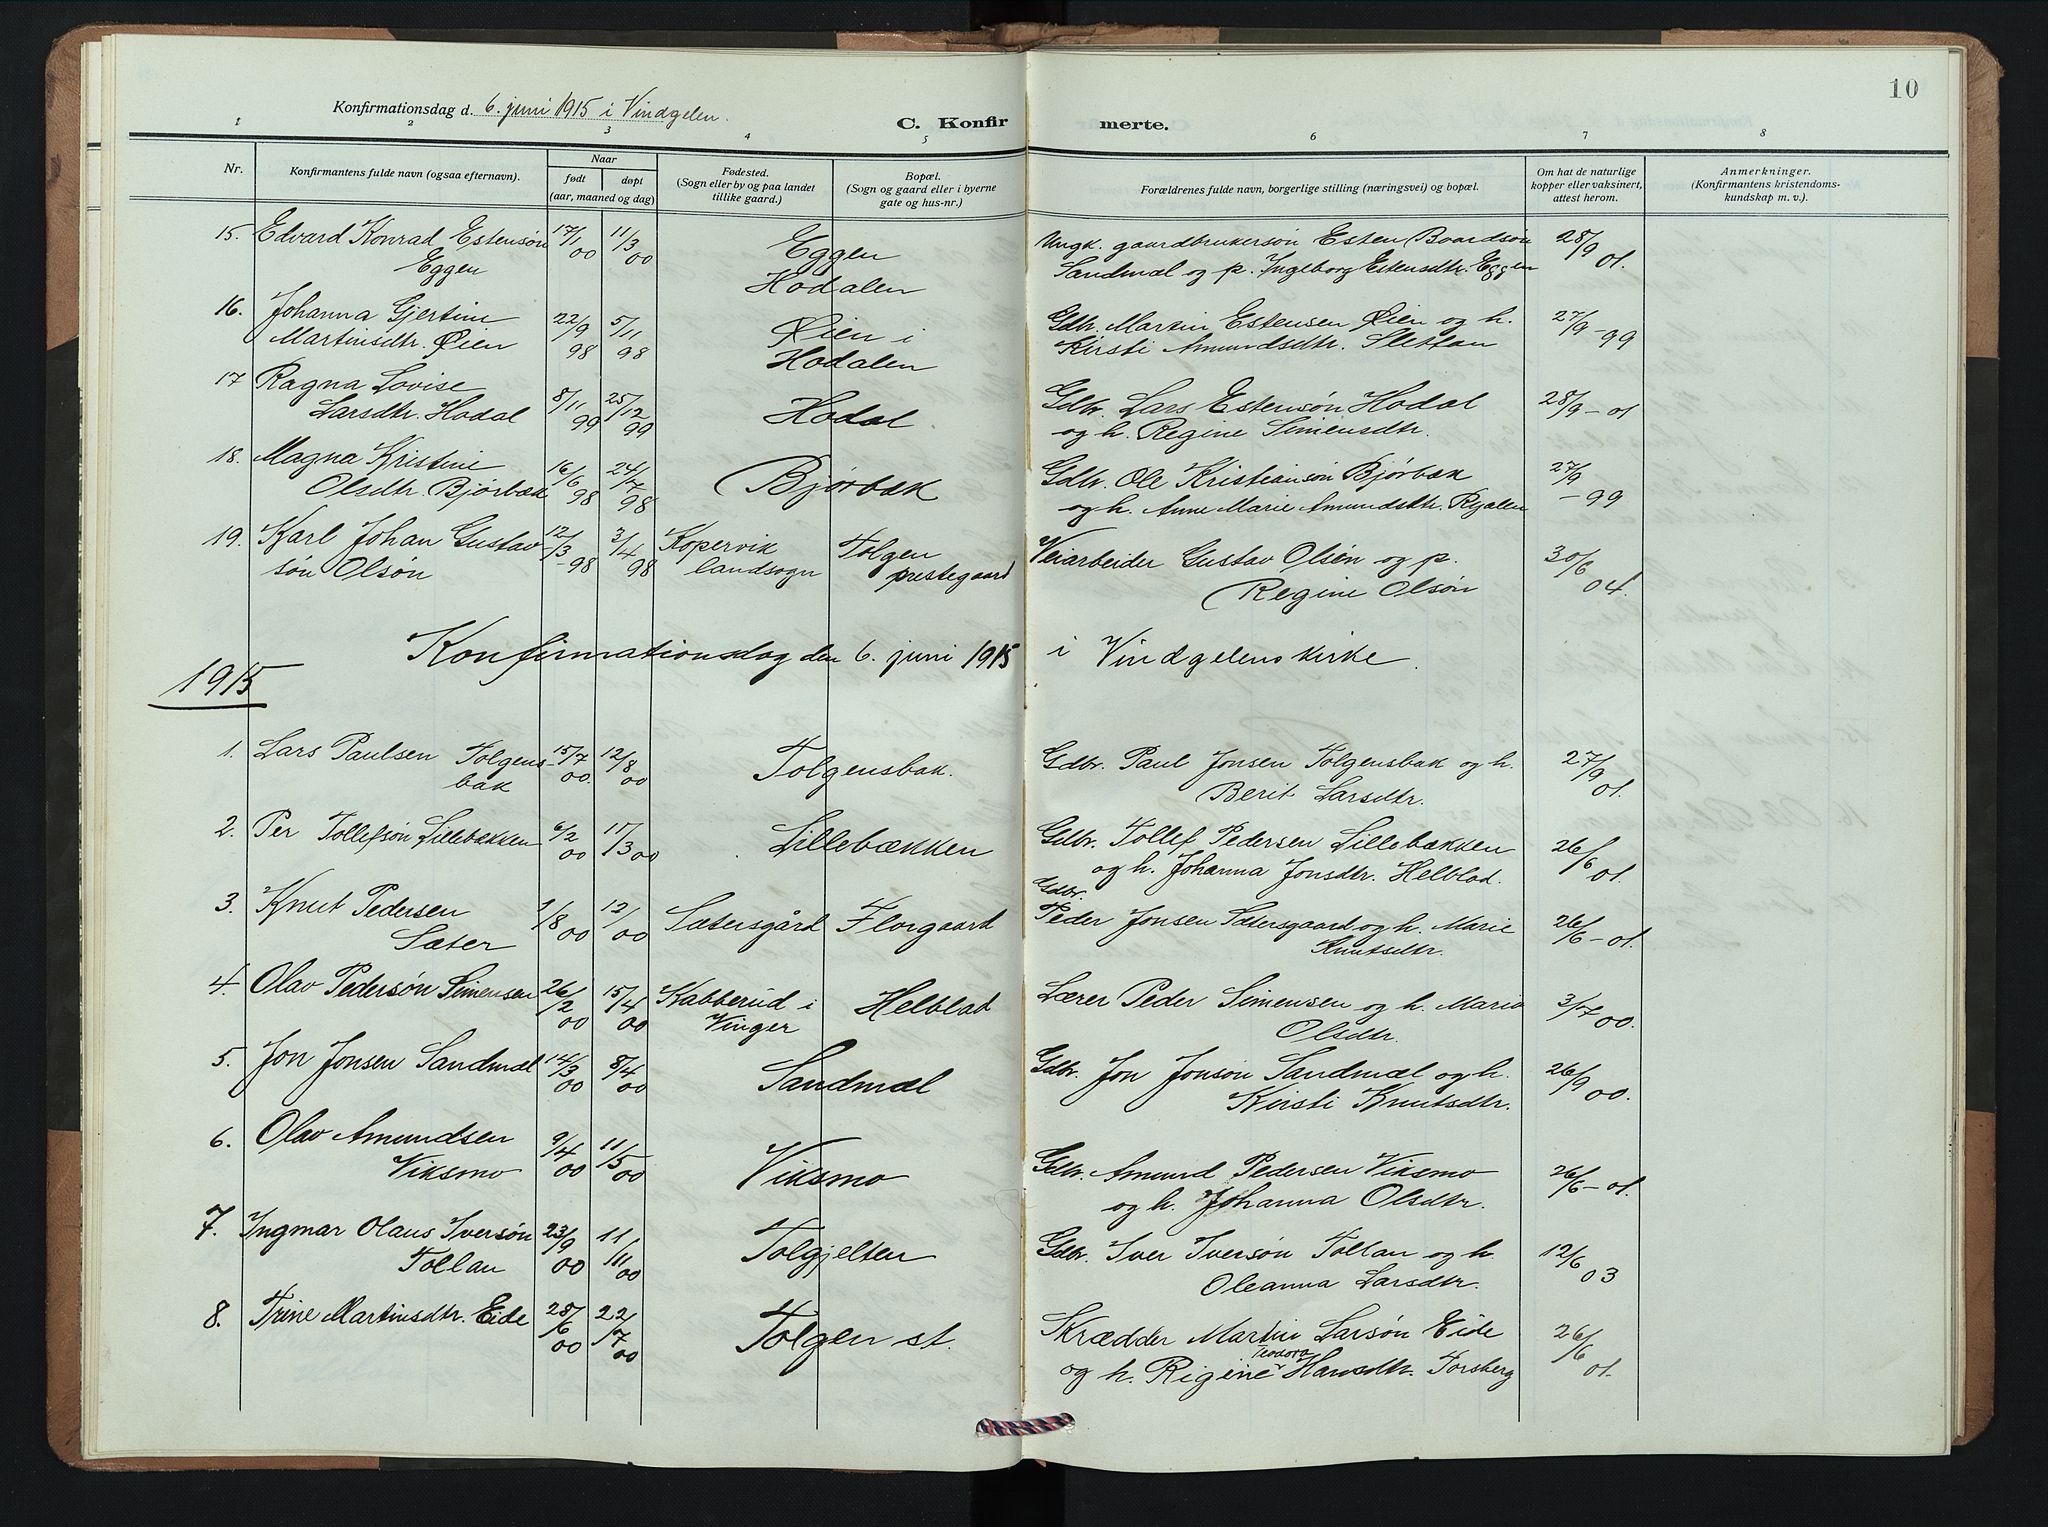 10
Konfirmationsdag d. 6. juni 1915 i Vindgelen.
C. Konfirmerte.
1 2 3 4 5 6 7 8
Nr.
Konfirmantens fulde navn (ogsaa efternavn).
Naar
født døpt
(aar, maaned og dag)
Fødested.
(Sogn eller by og paa landet
tillike gaard.)
Bopæl.
(Sogn og gaard eller i byerne
gate og hus-nr.)
Forældrenes fulde navn, borgerlige stilling (næringsvei) og bopæl.
Om hat de naturlige
kopper eller vaksinert,
attest herom.
Anmerkninger.
(Konfirmantens kristendoms-
kundskap m. v.).
15. Edvard Konrad Estensøn 17/1 00 11/3 00 Eggen Ungk. gaardbrukersøn Esten Baardsøn 28/9 01.
Eggen Hodalen Sandmæl og p. Ingeborg Estensdtr. Eggen
16. Johanna Gjertine 22/9 98 5/11 98 Øien i Gdbr. Martin Estensen Øien og h. 27/9-99
Martinsdtr. Øien Hodalen Kirsti Amundsdtr. Slettan
17 Ragna Lovise 8/11 99 25/12 99 Hodal Gdbr. Lars Estensøn Hodal 28/9-01
Larsdtr. Hodal og h. Regine Simensdtr.
18. Magna Kristine 16/6 98 24/7 98 Bjørbæk Gdbr. Ole Kristiansøn Bjørbæk 27/9-99
Olsdtr. Bjørbæk og h. Anne Marie Amundsdtr.
19. Karl Johan Gustav 12/3-98 3/4 98 Kopervik Tolgen Veiarbeider Gustav Olsen og p. 30/6 04.
søn Olsøn landsogn prestegaard Regine Olsøn
Konfirmationsdag den 6. juni 1915 i Vindgelens kirke.
1915
1. Lars Paulsen Tolgens- 15/7 00. 12/8 00 Tolgensbak. Gdbr. Paul Jonsen Tolgensbak og h. 27/9 01.
bak Berit Larsdtr.
2. Per Tollefsøn Lillebækken 6/2 00 17/3 00 Lillebækken Gdbr. Tollef Pedersen Lillebækken 26/6 01.
og h. Johanna Jonsdtr. Helblad.
3. Knut Pedersen 00 00 Sætersgård Florgaard Gdbr.
Sæter Peder Jonsen Sætersgaard og h. Marie 26/6-01.
Knutsdtr.
4. Olav Pedersøn Simensen 26/2 00 15/4 00 Kabberud i Helblad Lærer Peder Simensen og h. Marie 3/7 00.
Vinger Olsdtr.
5. Jon Jonsen Sandmæl 14/3 00 8/4 00 Sandmæl Gdbr. Jon Jonsøn Sandmæl og h. 26/9 00.
Kirsti Knutsdtr.
6. Olav Amundsen 9/4 00 11/5 00 Viksmo Gdbr. Amund Pedersen Viksmo 26/6-01.
Viksmo og h. Johanna Olsdtr.
7. Ingmar Olaus Iversøn 23/9 00 11/11 00 Tolgjelten Gdbr. Iver Iversøn Tollan og h. 12/6 03
Tollan Oleanna Larsdtr.
8. Trine Martinsdtr. Eide 28/6 00 22/7 00 Tolgen st. Skrædder Martin Larsøn Eide 26/6 01.
Teodora
og h. Rigine Hansdtr. Torsberg